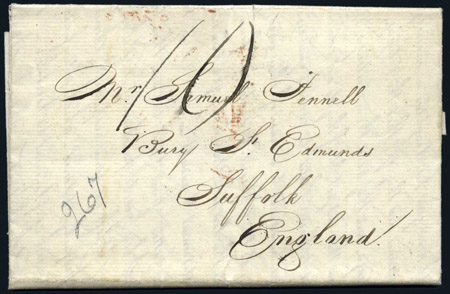 Mr Samuel Fennell
Bury St. Edmunds
Suffolk
England.
267